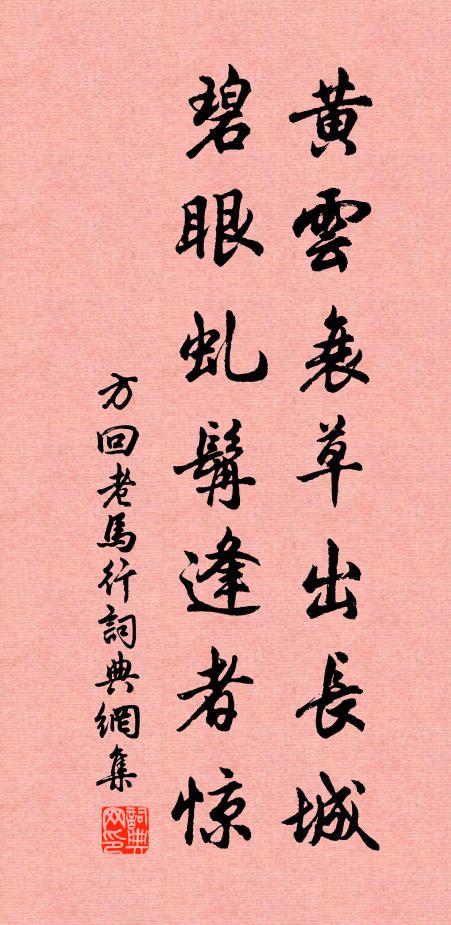 黃雲衰草出長城
碧眼虬髯逢者惊
方回老馬行詞典網集
詞典网印